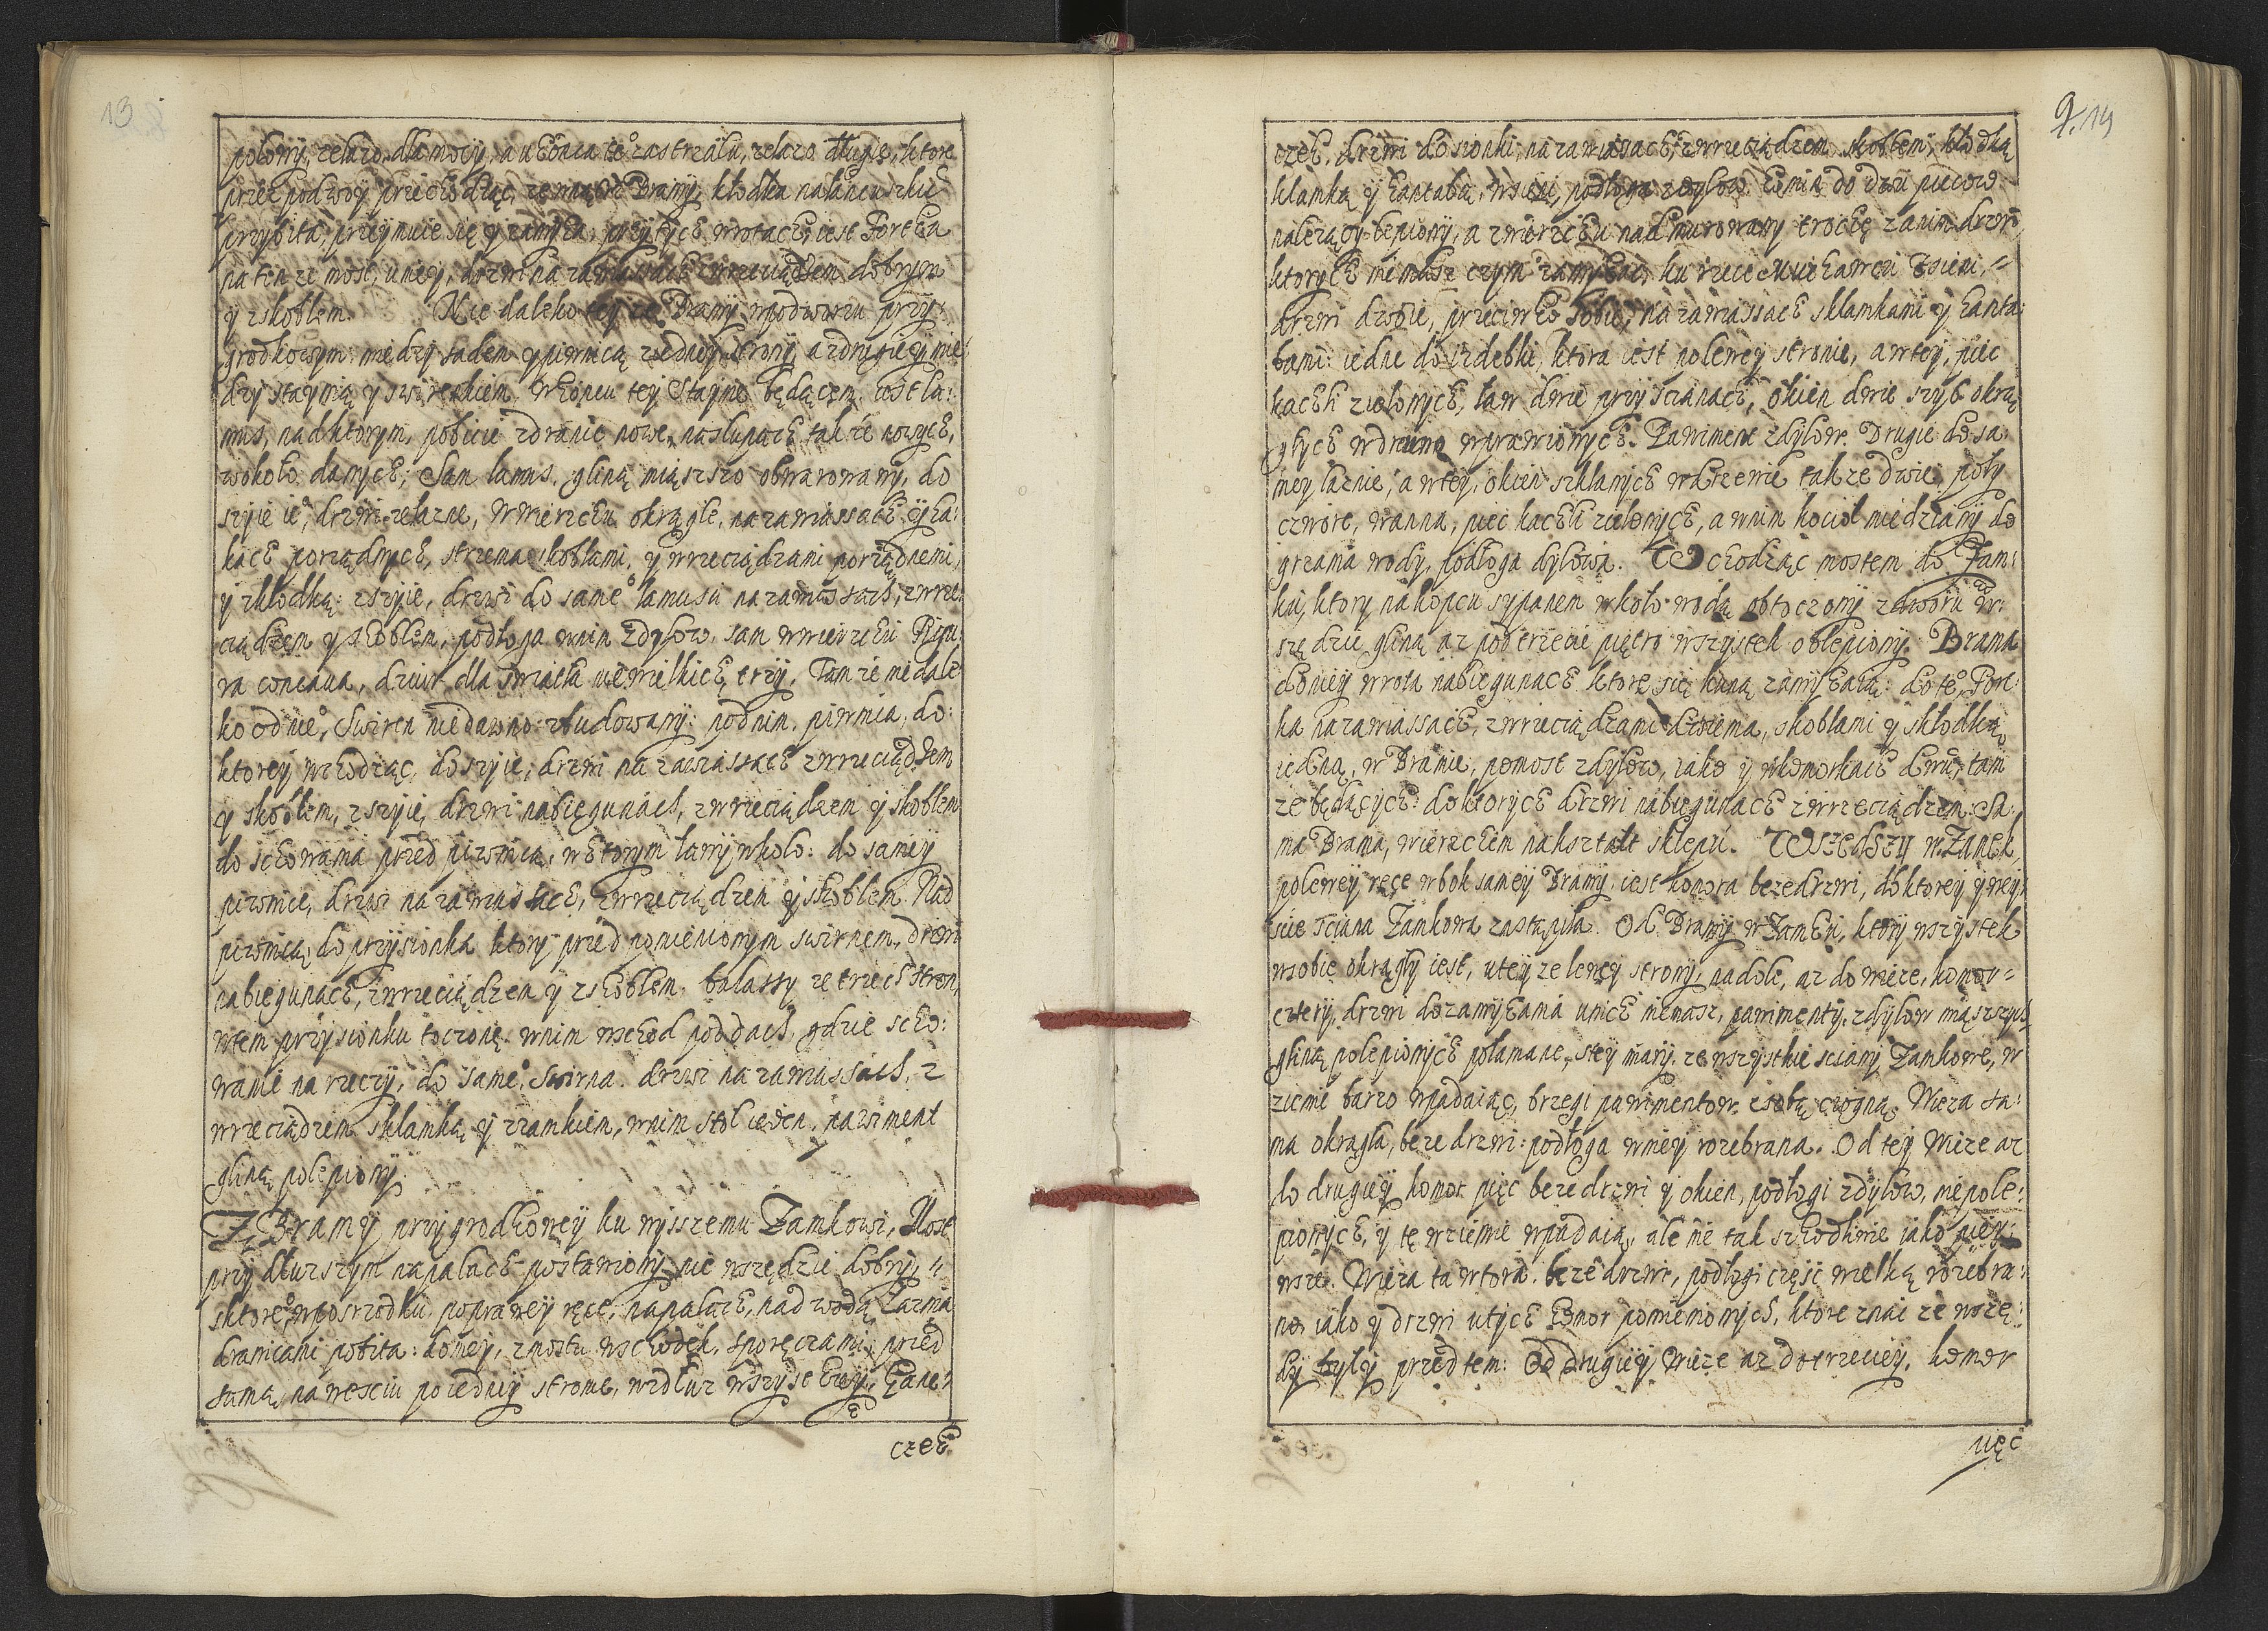 13
połowy, zelazo dla mocy, a u konca te° zastrzału, zelazo długie, ktore
przez podwoy przechodząc, zewnątrz Bramy, kłodka na łancuszku
przybita, przeymuie się y zamyka; przy tych wrotach, iest Fortka
na tenze most, u niey, drzwi na zawiassach z wrzeciądzem dobrym
y z skoblem. Nie daleko tey ze Bramy w podworzu przy:
grodkowym: miedzy sadem y piwnicą z iedney strony a z drugiey mie
dzy staynią y swirenkiem, w koncu tey Stayni będącem, iest la:
mus, nad ktorym, pobicie z dranic nowe, na słupach także nowych,
w około danych; Sam lamus, gliną miąszszo obwarowany, do
szyie ie°, drzwi zelazne, w wierzchu okrągłe, na zawiassach y ha:
kach porządnych, z trzema skoblami, y wrzeciądzami porządnemi,
y z kłodką: z szyie, drzwi do same° lamusu na zawiassach, z wrze:
ciądzem y skoblem, podłoga w nim z dylow, sam w wierzchu Figu:
ra concaua, dziur dla swiatła niewielkich trzy. Tam ze nie dale
ko od nie°, Swiren niedawno zbudowany: pod nim piwnica, do:
ktorey wchodząc, do szyie, drzwi na zawiassach z wrzeciądzem
y skoblem, z szyie, drzwi na biegunach, z wrzeciądzem y skoblem
do schowania przed piwnicą, w ktorym ławy w koło: do samey
piwnice, drzwi na zawiassach, z wrzeciądzem y skoblem. Nad
piwnicą, do przysionka ktory przed pomienionym swirnem, drzwi
na biegunach, z wrzeciądzem y z skoblem. balassy ze trzech stron,
w tem przysionku toczone, w nim wschod pod dach, gdzie scho:
wanie na rzeczy, do same° swirna. drzwi na zawiassach, z
wrzeciądzem z klamką y z zamkiem, w nim stoł ieden, pawiment
gliną polepiony.
Z Bramy przygrodkowey ku wyszszemu Zamkowi, Most
przy dłuzszym na palach postawiony nie wszędzie dobry,
z ktore°, w posrzodku, po prawey ręce, na palach, nad wodą Łaznia
dranicami pobita: do niey, z mostu wschodek, z poręczami; przed
samą, na wesciu po iedney stronie, wzdłuz wszyskiey, Gane:
czek

9. 14
czek. drzwi do sionki, na zawiasach, z wrzeciądzem skoblem, kłodką
klamką y hantabą, w sieni, podłoga z dylow komin do dwu piecow
nalezący lepiony, a z wierzchu nad murowany trochę za nim drzwi
ktorych niemasz czym zamykać, ku rzece z sieni,
drzwi dwoie, przeciwko sobie, na zawiassach z klamkami y hanta:
bami: iedne do izdebki, ktora iest po lewey stronie, a w tey, piec
kachli zielonych, ław dwie przy scianach, okien dwie szyb okrą
głych w drzewo wprawionych. Pawiment z dylow. Drugie do sa:
mey łaznie, a w tey, okien szklanych w drzewie takze dwie, poły
czworo, wanna, piec kachli zielonych, a w nim kocioł miedziany do
grzania wody, podłoga dylowa. Wchodząc mostem do Zam:
ku, ktory na kopcu sypanem w koło wodą obtoczony z dworu w
szędzie gliną az po trzecie piętro wszystek oblepiony. Brama
do niey wrota na biegunach ktore się kuną zamykaią: do te° Fort:
ka na zawiassach, z wrzeciądzami dwiema, skoblami y z kłodką
iedną, w Bramie, pomost z dylow, iako y w komorkach dwu, tam
ze będących: do ktorych drzwi na biegunach z wrzeciądzem. Sa:
ma Brama, wierzchem na kształt sklepu. Wszedszy w Zamek,
po lewey ręce w bok samey Bramy, iest komora beze drzwi, do ktorey y wey
scie sciana Zamkowa zastąpiła. Od Bramy w Zamku, ktory wszystek
w sobie okrągły iest, u tey ze lewey strony, na dole, az do wieze, komor
cztery, drzwi do zamykania u nich niemasz, pawimenty, z dylow miąszszych
gliną polepionych połamane, z tey miary, ze wszystkie sciany Zamkowe, w
ziemie barzo wpadaiąc, brzegi pawimentow z sobą ciągną. Wieza sa:
ma okrągła, beze drzwi: podłoga w niey rozebrana. Od tey Wieze az
do drugiey komor pięć beze drzwi y okien, podłogi z dylow, niepole:
pionych, y te w ziemie wpadaią, ale nie tak szkodliwie iako pier:
wsze. Wieza ta wtora. beze drzwi, podłogi część wielką rozebra:
no, iako y drzwi u tych komor pomienionych, ktore znać ze wszę:
dy były przed tem: Od drugiey Wieze az do trzeciey, komor
pięć